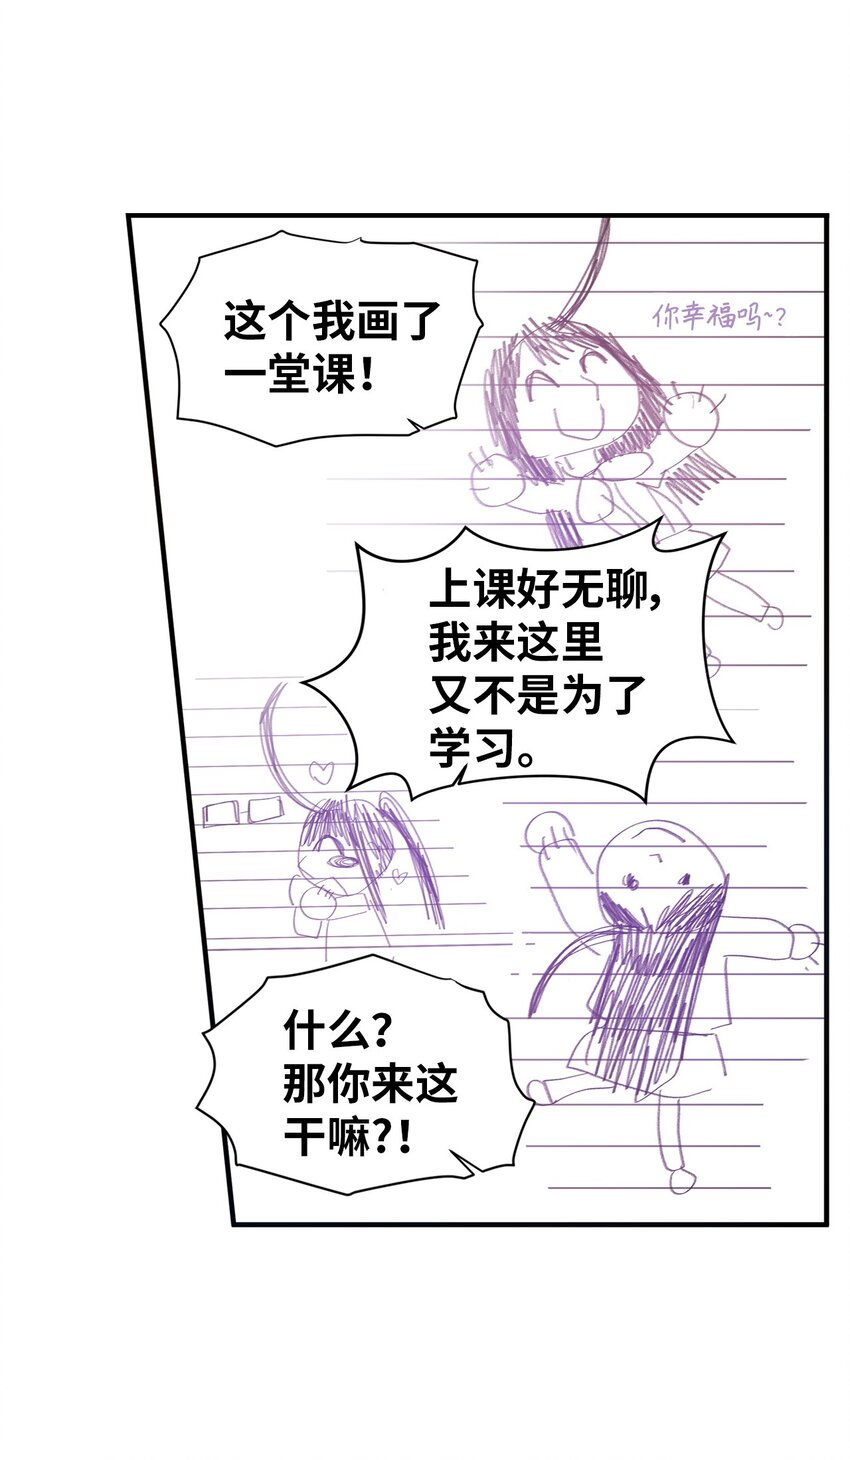 这个我画了
一堂课！
你幸福吗~？
上课好无聊，
我来这里
又不是为了
学习。
什么？
那你来这
干嘛？！